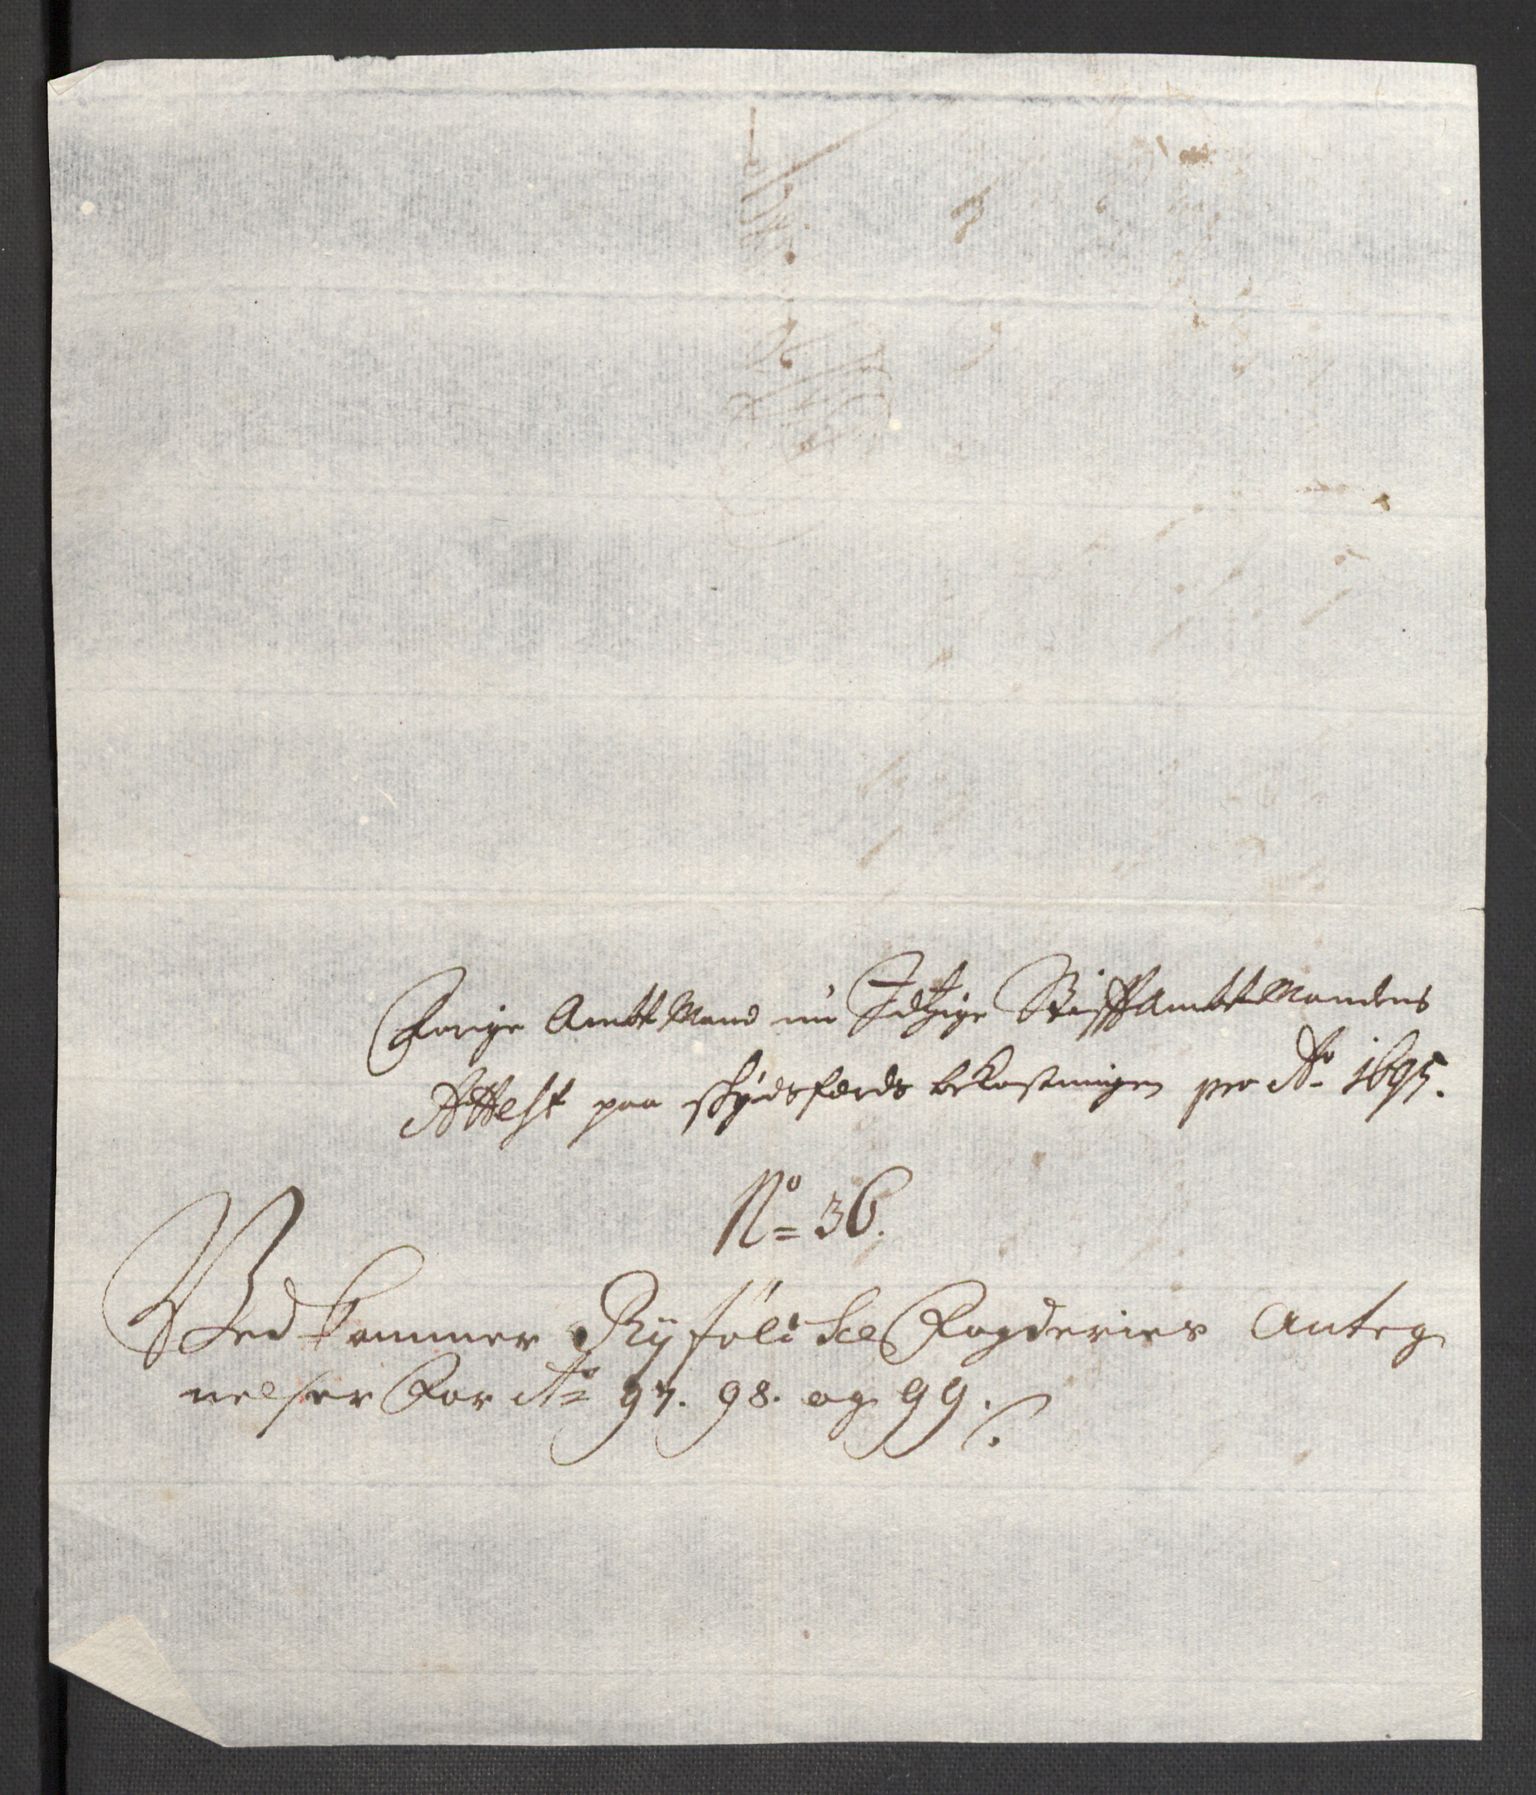 Forige Ambtmand nu Itzige Stifftambtmandens
Attest paa skydsferds bekostningen pro Ao 1695.
No = 36.
Vedkommer Ryfölske Fogderies Anteg
nelser for Ao 97. 98. og 99.